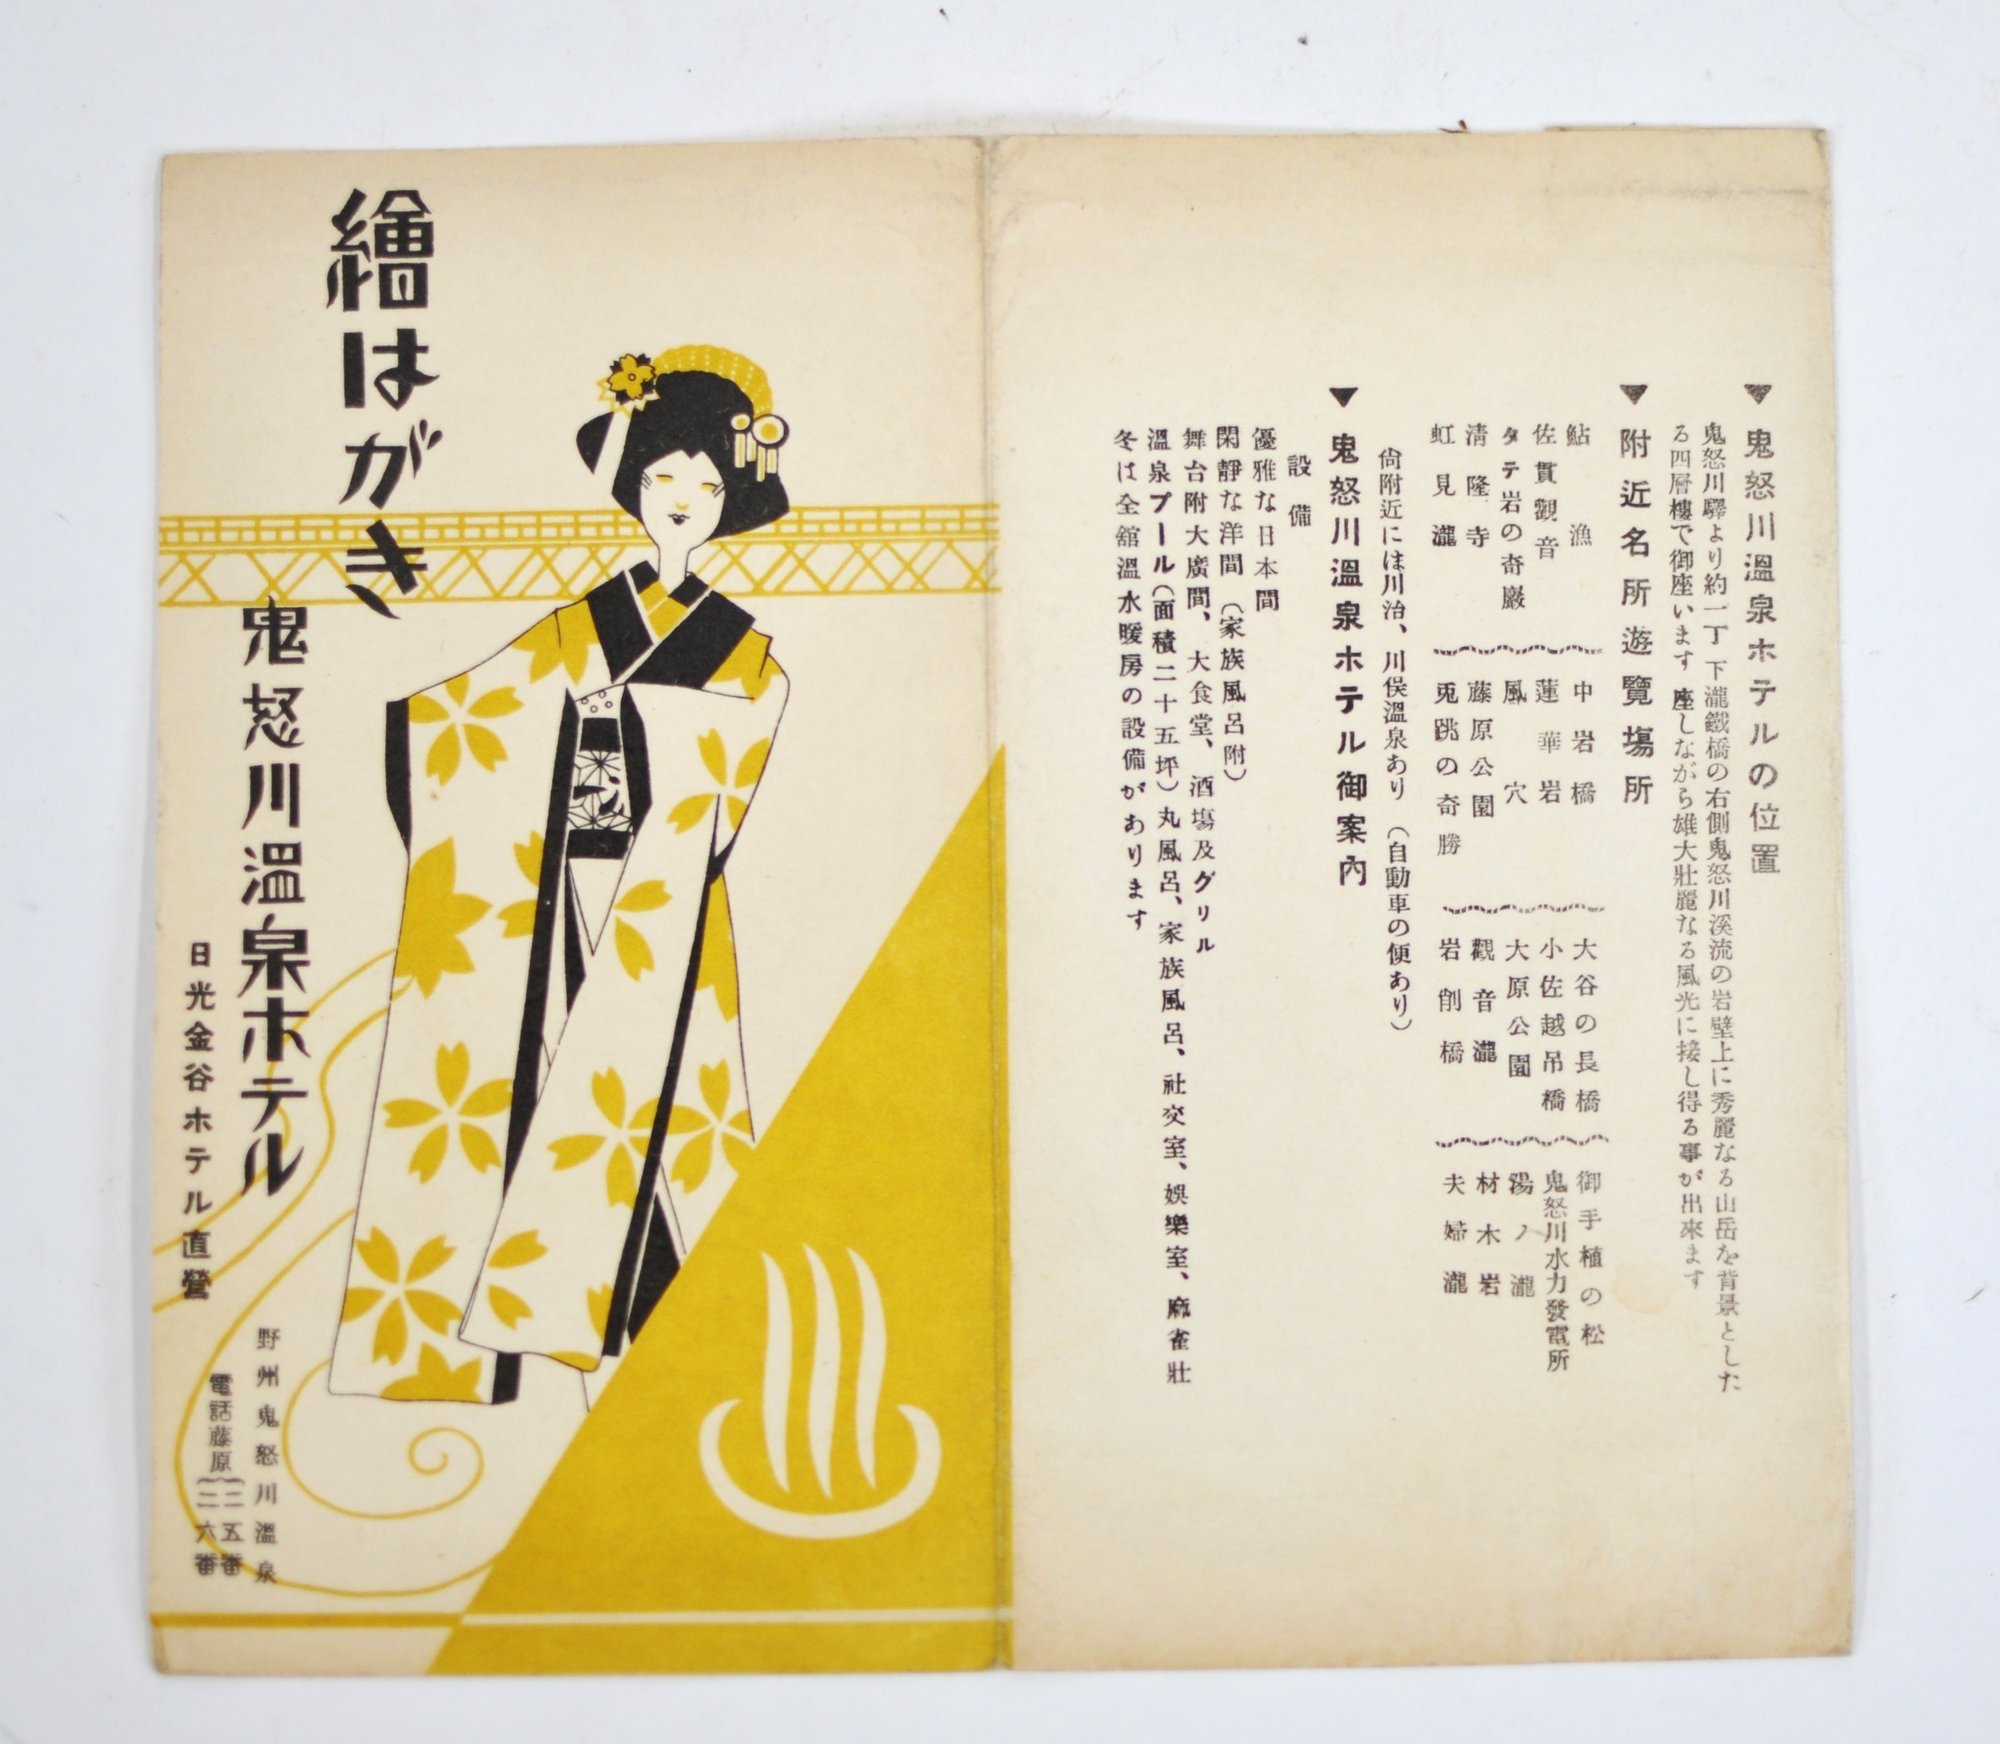 ▼鬼怒川溫泉ホテルの位置
鬼怒川驛より約一丁 下瀧鐵橋の右側鬼怒川溪流の岩壁上に秀麗なる山岳を背景とした
る四層樓で御座います 座しながら雄大壯麗なる風光に接し得る事が出來ます
▼附近名所遊覽場所
鮎漁 中岩橋 大谷の長橋 御手植の松
佐貫觀音 蓮華岩 小佐越吊橋 鬼怒川水力發電所
タテ岩の奇巖 風穴 大原公園 湯ノ瀧
淸隆寺 藤原公園 觀音瀧 材木岩
虹見瀧 兎跳の奇勝 岩削橋 夫婦瀧
尙附近には川治、川俣溫泉あり（自動車の便あり）
▼鬼怒川溫泉ホテル御案內
設備
優雅な日本間
閑靜な洋間（家族風呂附）
舞台附大廣間、大食堂、酒場及グリル
溫泉プール（面積二十五坪）丸風呂、家族風呂、社交室、娛樂室、麻雀壯
冬は全舘溫水暖房の設備があります
繪はがき
鬼怒川溫泉ホテル
日光金谷ホテル直營
野州鬼怒川溫泉
電話藤原{二五番
二六番